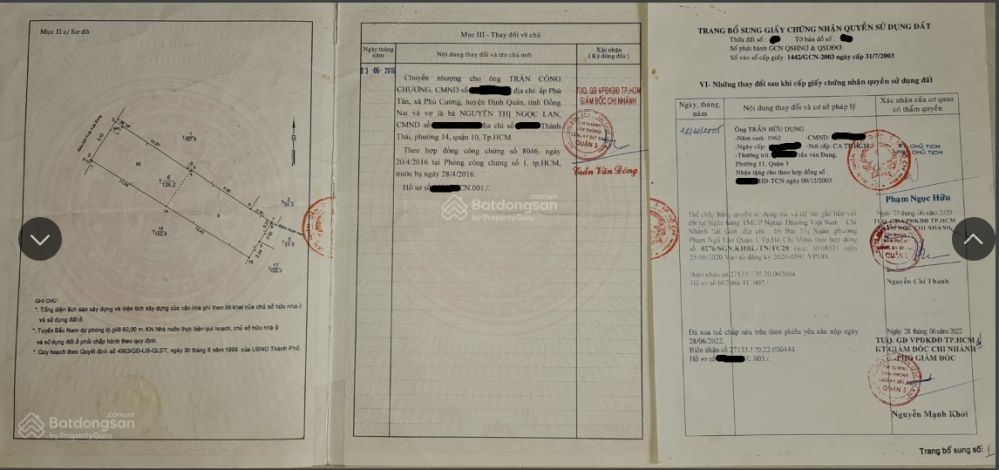 Mục II c/ Sơ đồ
B
GHI CHÚ:
*. Tổng diện tích sàn xây dựng và diện tích xây dựng của căn nhà ghi theo lời khai của chủ sở hữu nhà ở
và sử dụng đất ở.
*. Tuyến Bắc Nam dự phóng lộ giới 60,00 m. Khi Nhà nước thực hiện qui hoạch, chủ sở hữu nhà ở
và sử dụng đất ở phải chấp hành theo quy định.
*. Quy hoạch theo Quyết định số 4963/QĐ-UB-QLĐT, ngày 30 tháng 8 năm 1999 của UBND Thành Phố.
Batdongsan.com.vn
by PropertyGuru
Mục III - Thay đổi về chủ
Ngày tháng năm
Nội dung thay đổi và tên chủ mới
Xác nhận
(Ký đóng dấu)
03-06-2016
Chuyển nhượng cho ông TRẦN CÔNG
CHƯƠNG, CMND số địa chỉ ấp Phú
Tân, xã Phú Cường, huyện Định Quán, tỉnh Đồng
Nai và vợ là bà NGUYỄN THỊ NGỌC LAN,
CMND số địa chỉ số Thành
Thái, phường 14, quận 10, Tp.HCM.
Theo hợp đồng công chứng số 8046, ngày
20/4/2016 tại Phòng công chứng số 1, tp.HCM,
trước bạ ngày 28/4/2016.
Hồ sơ số CN.001./.
TUQ. GĐ VPĐKĐĐ TP.HCM
GIÁM ĐỐC CHI NHÁNH
QUẬN 3
Trần Văn Đông
Batdongsan.com.vn
by PropertyGuru
TRANG BỔ SUNG GIẤY CHỨNG NHẬN QUYỀN SỬ DỤNG ĐẤT
Thửa đất số: Tờ bản đồ số:
Số phát hành GCN QSHNƠ & QSDĐƠ:
Số vào sổ cấp giấy: 1442/GCN-2003 ngày cấp 31/7/2003
VI- Những thay đổi sau khi cấp giấy chứng nhận quyền sử dụng đất
Ngày, tháng, năm
Nội dung thay đổi và cơ sở pháp lý
Xác nhận của cơ quan có thẩm quyền
Ông TRẦN HỮU DỤNG
-Năm sinh: 1962 -CMND:
-Ngày cấp: -Nơi cấp: CA TP.HCM
-Thường trú: Trần văn Đang,
Phường 11, Quận 3
Nhận tặng cho theo hợp đồng số:
HĐ-TCN ngày 09/12/2003
CHỦ TỊCH
PHÓ CHỦ TỊCH
Phạm Ngọc Hữu
Ngày 25 tháng 06 năm 2020
TUQ. GĐ VPĐKĐĐ TP.HCM
Thế chấp bằng quyền sử dụng đất và tài sản gắn liền với
đất tại Ngân hàng TMCP Ngoại Thương Việt Nam - Chi
Nhánh Sài Gòn địa chỉ : 69 Bùi Thị Xuân ,phường
Phạm Ngũ Lão Quận 1 Tp.Hồ Chí Minh theo hợp đồng
QUẬN 3
Nguyễn Chí Thành
Biên nhận số 27133.120.20.002604
Hồ sơ số 002606.TC.002./.
Đã xoá thế chấp nêu trên theo phiếu yêu cầu nộp ngày
28/06/2022.
Biên nhận số 27133.120.22.000444
Hồ sơ số TC.003./.
Ngày 28 tháng 06 năm 2022
TUQ. GĐ VPĐKĐĐ TP.HCM
KT.GIÁM ĐỐC CHI NHÁNH
PHÓ GIÁM ĐỐC
QUẬN 3
Nguyễn Mạnh Khởi
Batdongsan.com.vn
by PropertyGuru
Trang bổ sung số: 1